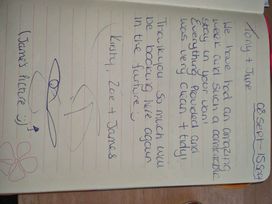 08 Sept - 15 Sept
Tony + June
We have had an amazing
week and such a comfortable
stay in your home
Everything provided and
was very clean + tidy!
Thankyou so much will
be booking here again
in the future
Kirsty, Zoe + James
(James picture :))